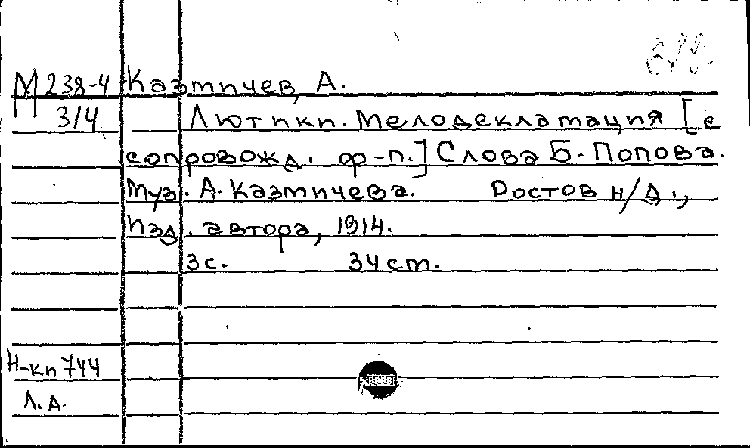 М 238-4 Казтичев, А.
3/4 Лютики. Мелодекламация [с
сопровожд. ф-п.] Слова Б. Попова.
Муз. А. Казтичева. Ростов н/Д.,
Изд. автора, 1914.
3с. 34 ст.
Н-кп 744
Л.Д.